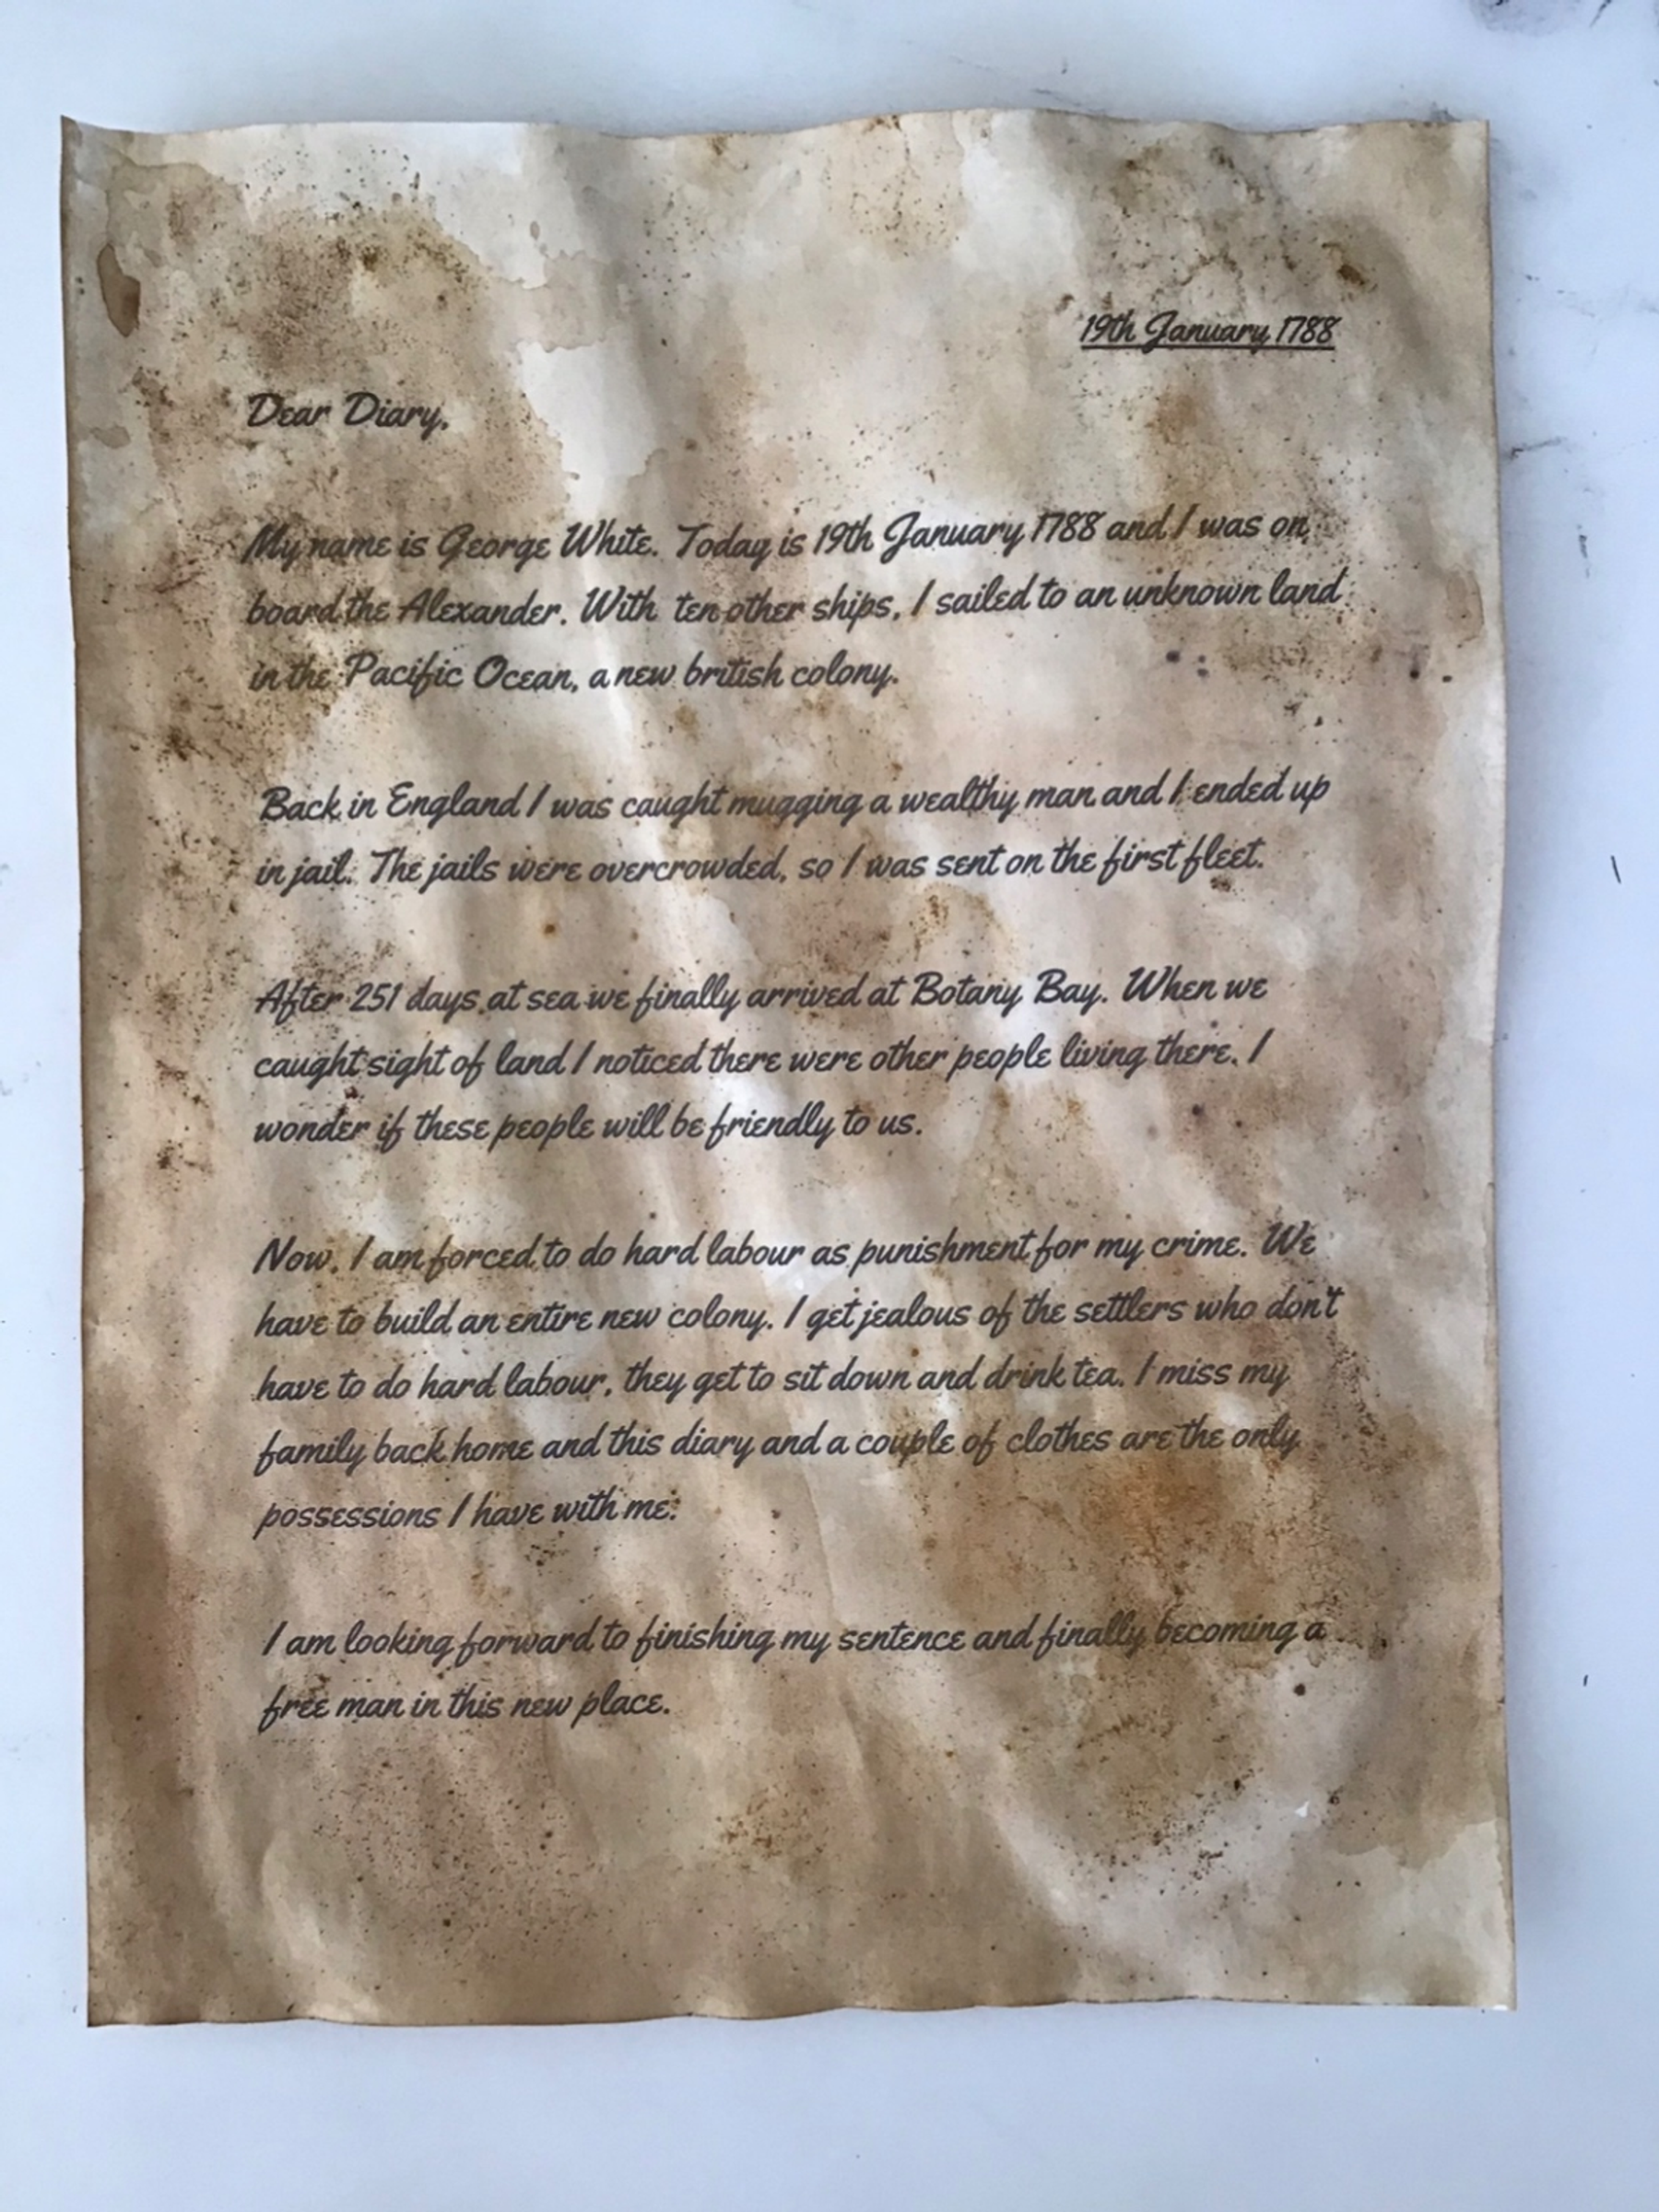 19th January 1788
Dear Diary,
My name is George White. Today is 19th January 1788 and I was on
board the Alexander. With ten other ships, I sailed to an unknown land
in the Pacific Ocean, a new british colony.
Back in England I was caught mugging a wealthy man and I ended up
in jail. The jails were overcrowded, so I was sent on the first fleet.
After 251 days at sea we finally arrived at Botany Bay. When we
caught sight of land I noticed there were other people living there. I
wonder if these people will be friendly to us.
Now, I am forced to do hard labour as punishment for my crime. We
have to build an entire new colony. I get jealous of the settlers who don't
have to do hard labour, they get to sit down and drink tea. I miss my
family back home and this diary and a couple of clothes are the only
possessions I have with me.
I am looking forward to finishing my sentence and finally becoming a
free man in this new place.